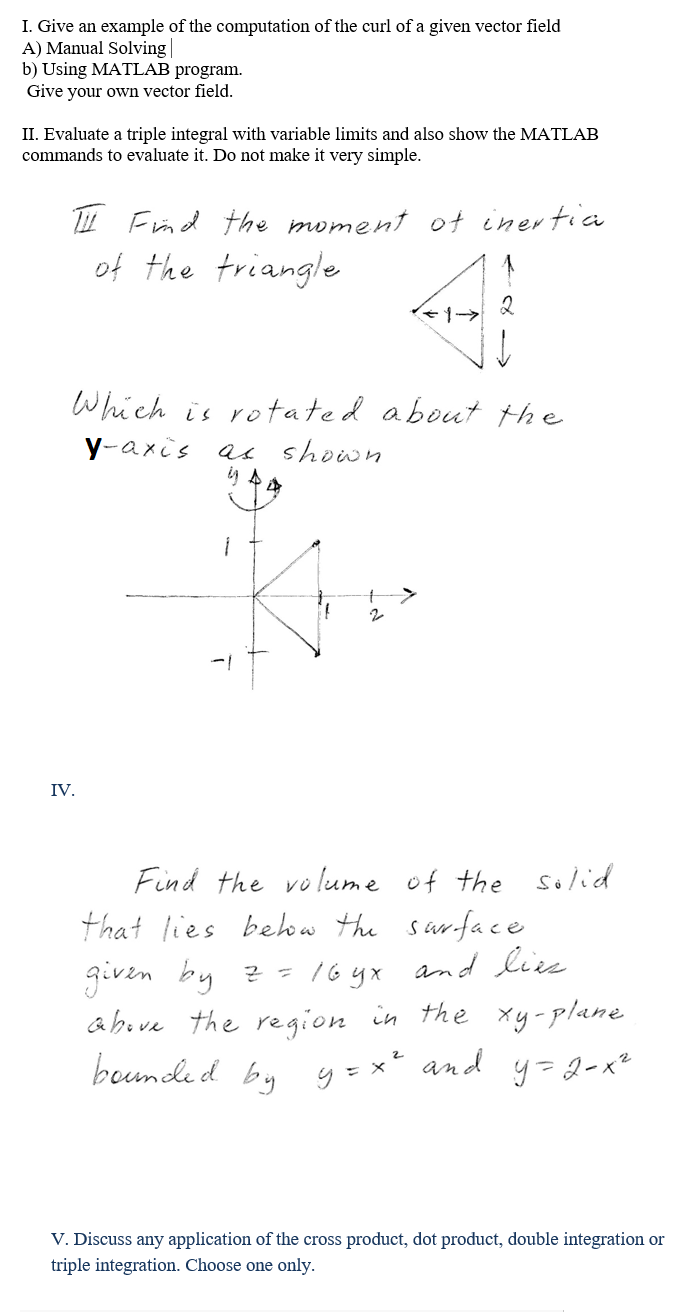 I. Give an example of the computation of the curl of a given vector field
A) Manual Solving
b) Using MATLAB program.
Give your own vector field.
II. Evaluate a triple integral with variable limits and also show the MATLAB
commands to evaluate it. Do not make it very simple.
III Find the moment of inertia
of the triangle
←1→ 2
Which is rotated about the
y-axis as shown
y
1
1
2
-1
IV.
Find the volume of the solid
that lies below the surface
given by z = 16yx and lies
above the region in the xy-plane
bounded by y = x² and y = 2-x²
V. Discuss any application of the cross product, dot product, double integration or
triple integration. Choose one only.